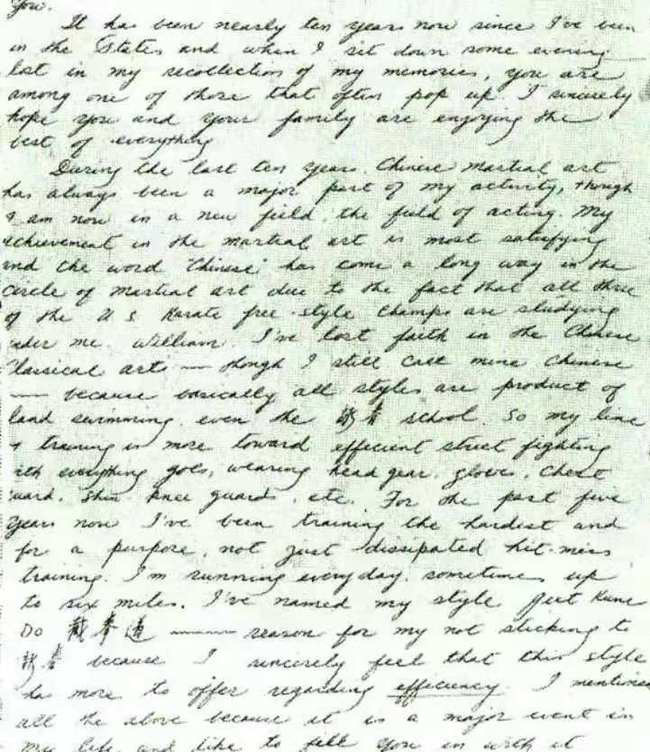 You.
It has been nearly ten years now since I've been
in the States and when I sit down some evening
lost in my recollection of my memories, you are
among one of those that often pop up. I sincerely
hope you and your family are enjoying the
best of everything
During the last ten years, Chinese martial art
has always been a major part of my activity, though
I am now in a new field, the field of acting. My
achievement in the martial art is most satisfying
and the word 'Chinese' has come a long way in the
circle of martial art due to the fact that all three
of the U S Karate free-style champs are studying
under me. William. I've lost faith in the Chinese
Classical arts — though I still call mine Chinese
— because basically all styles are product of
land swimming, even the 詠春 school. So my line
of training is more toward efficient street fighting
with everything goes, wearing head gear, gloves, chest
guard, shin knee guards, etc. For the past five
years now I've been training the hardest and
for a purpose, not just dissipated hit-miss
training. I'm running everyday, sometimes up
to six miles. I've named my style Jeet Kune
Do 截拳道 — reason for my not sticking to
詠春 because I sincerely feel that this style
has more to offer regarding efficiency. I mentioned
all the above because it is a major event in
my life and like to fill you in with it